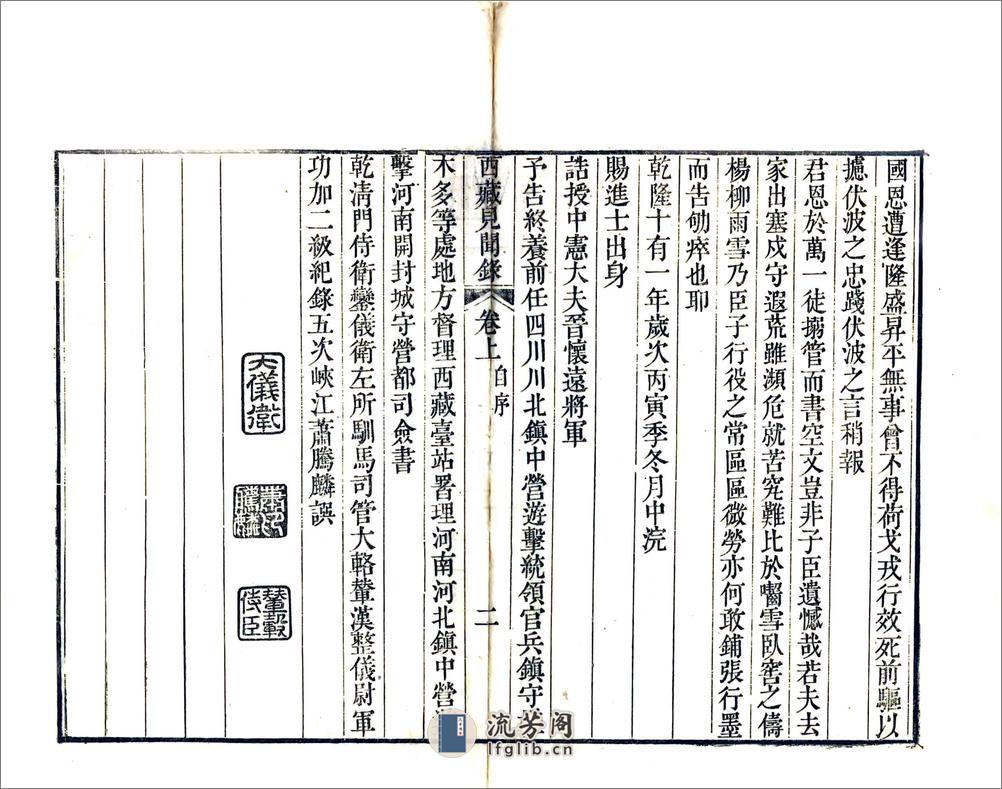 國恩遭逢隆盛昇平無事曾不得荷戈戎行效死前驅以
攄伏波之忠踐伏波之言稍報
君恩於萬一徒搦管而書空文豈非子臣遺憾哉若夫去
家出塞戍守遐荒雖瀕危就苦究難比於嚙雪臥窖之儔
楊柳雨雪乃臣子行役之常區區微勞亦何敢鋪張行墨
而告劬瘁也耶
乾隆十有一年歲次丙寅季冬月中浣
賜進士出身
誥授中憲大夫晉懷遠將軍
予告終養前任四川川北鎮中營遊擊統領官兵鎮守
西藏見聞錄 卷上 自序 二
木多等處地方督理西藏臺站署理河南河北鎮中營
擊河南開封城守營都司僉書
乾清門侍衛鑾儀衛左所馴馬司管大輅輦漢整儀尉軍
功加二級紀錄五次峽江蕭騰麟誤
天儀衛
蕭騰麟印
輦轂侍臣
流芳阁
lfglib.cn